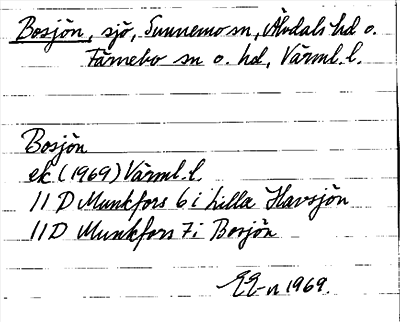 Bosjön, sjö, Sunnemo sn, Älvdals hd o.
Färnebo sn o. hd, Värml. l.
Bosjön
ek (1969) Värml. l.
11 D Munkfors 6 i Lilla Havsjön
11 D Munkfors 7 i Bosjön
1969.